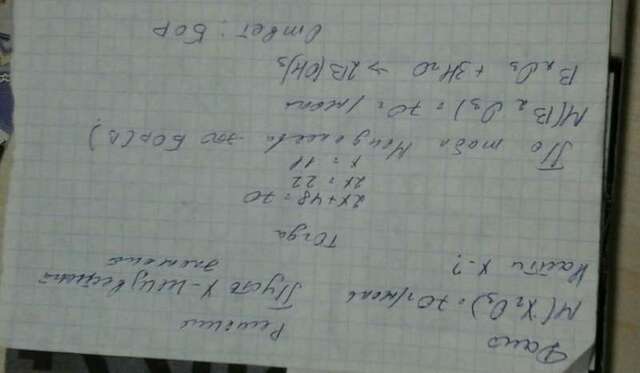 Дано
Решение
M(X₂O₃)=70г/моль
Пусть X-неизвестный
элемент
Найти X-?
Тогда
2x+48=70
2x=22
x=11
По табл Менделеева это Бор(B)
M(B₂O₃)=70г/моль
B₂O₃+3H₂O→2B(OH)₃
Ответ: Бор